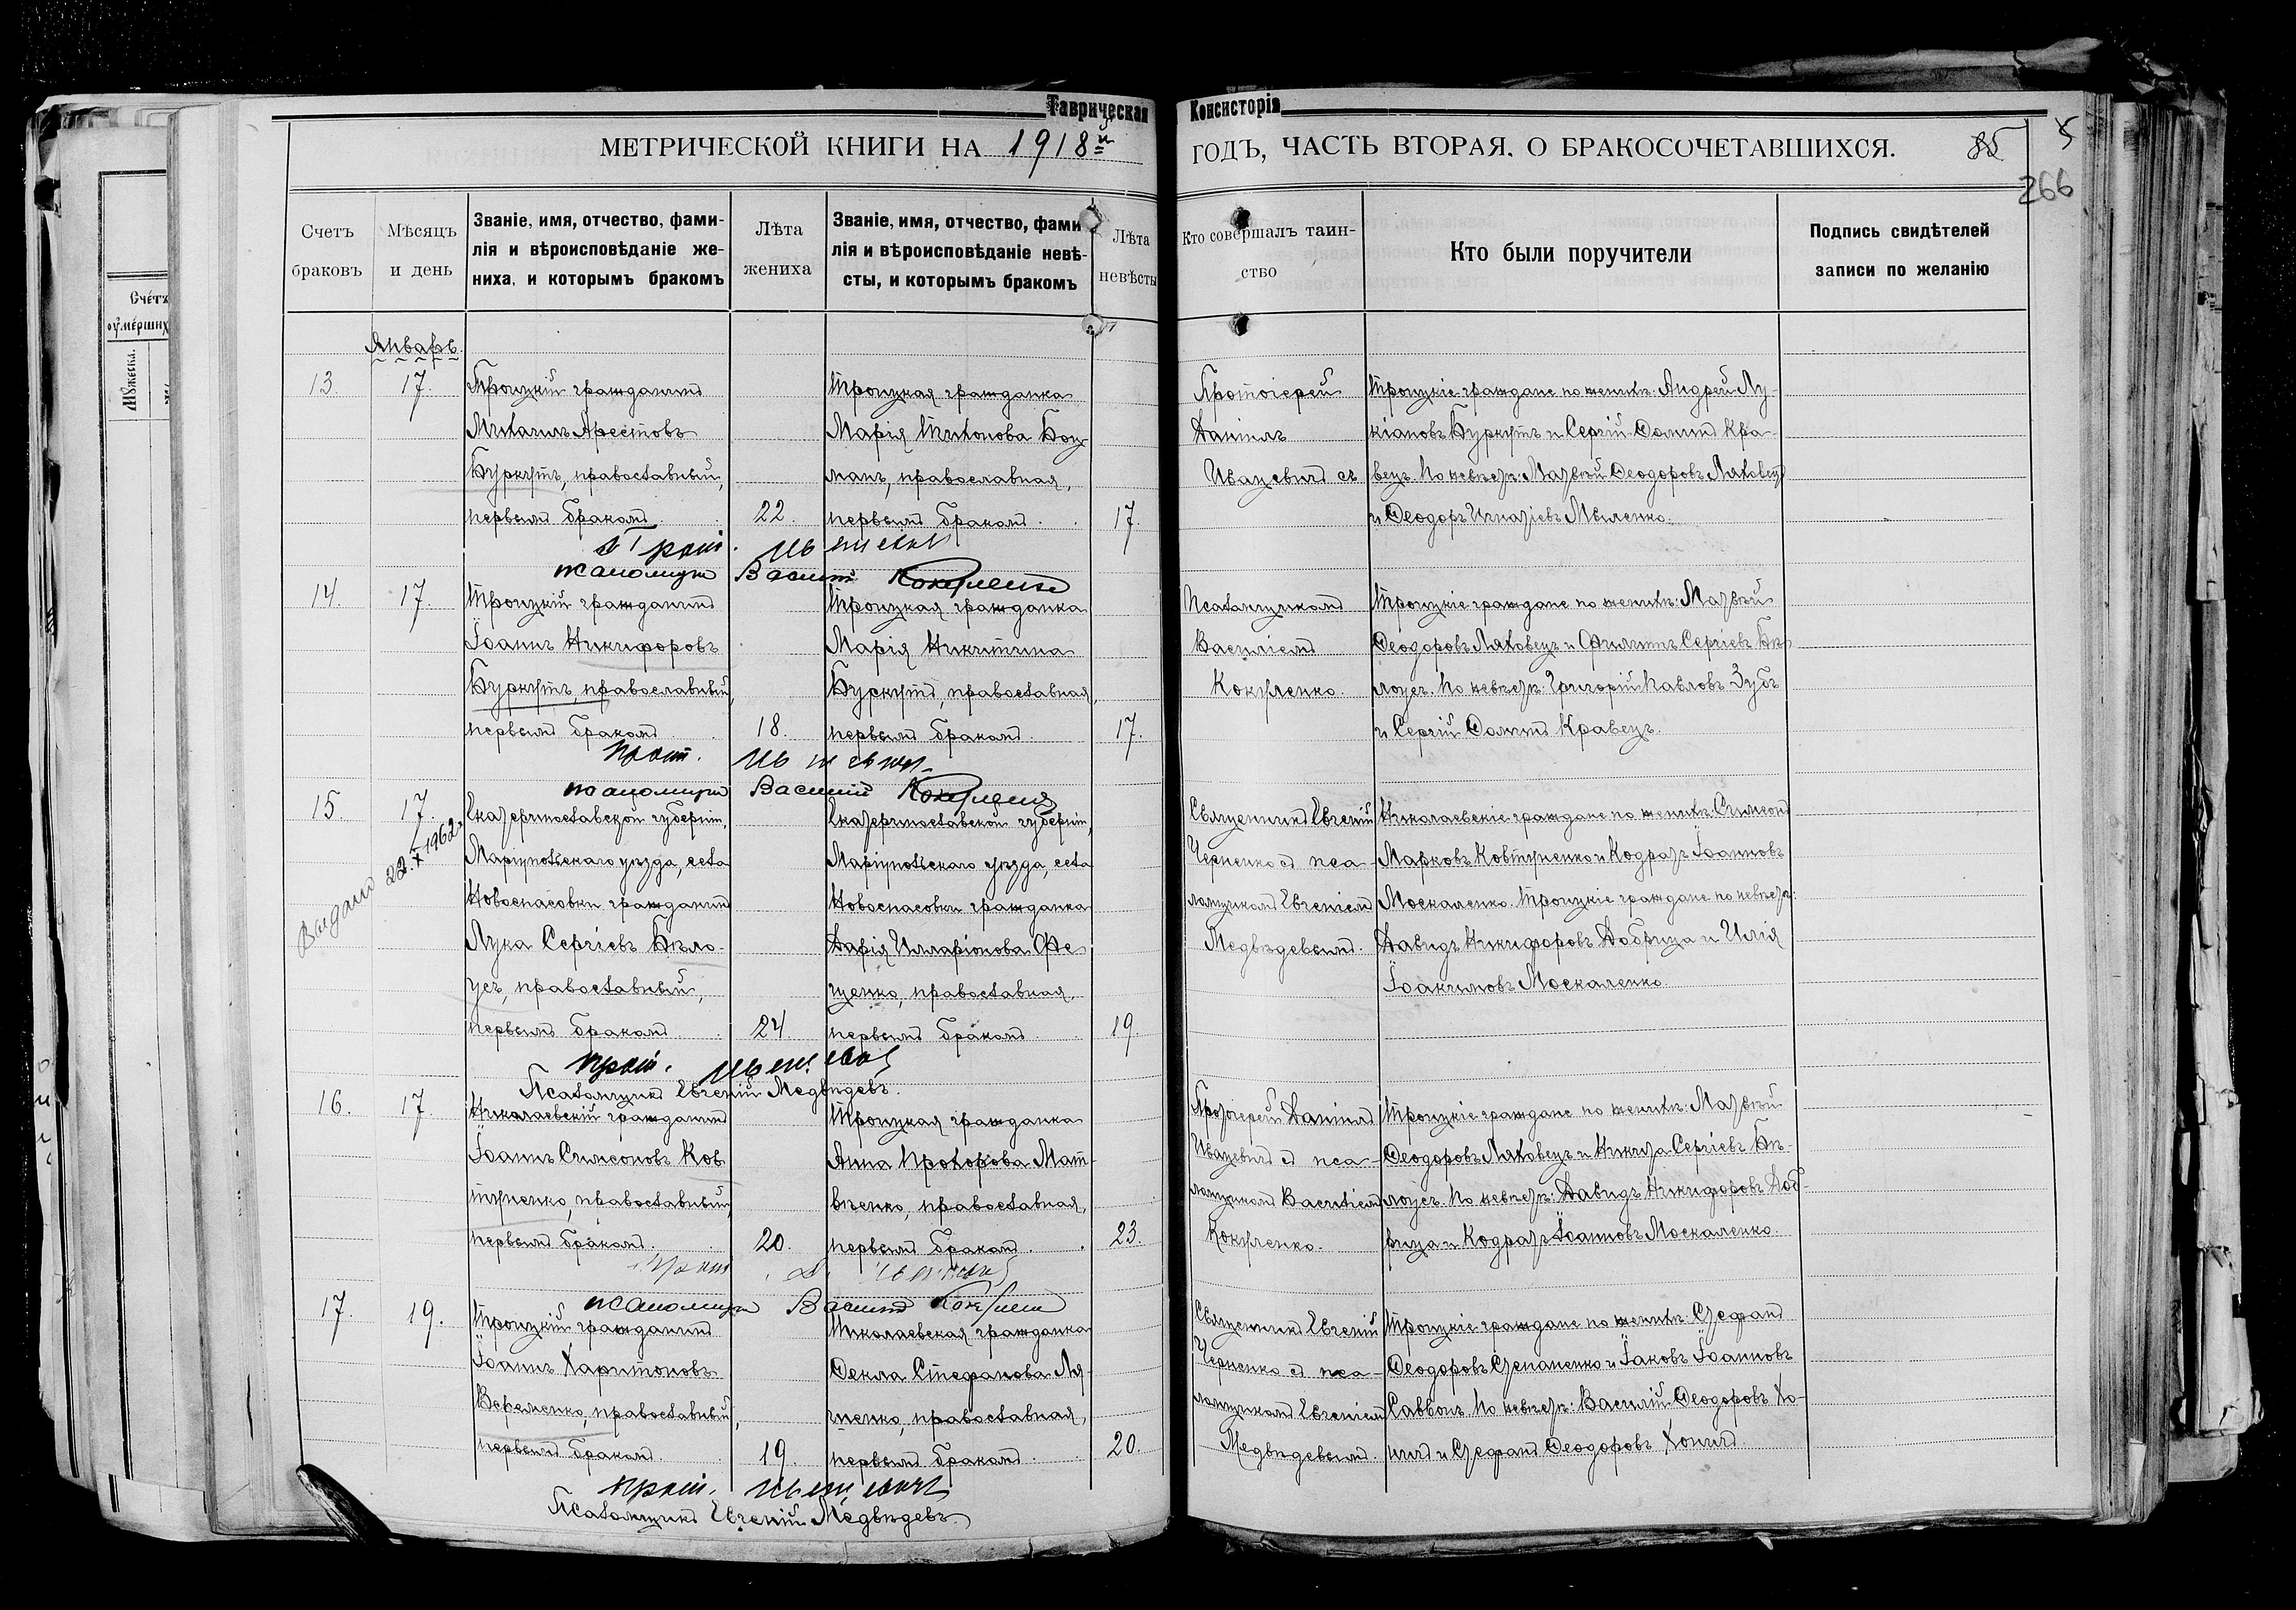 Таврическая Консисторія
МЕТРИЧЕСКОЙ КНИГИ НА 1918й ГОДЪ, ЧАСТЬ ВТОРАЯ, О БРАКОСОЧЕТАВШИХСЯ.
85
266
Счетъ браковъ
Мѣсяцъ и день
Званіе, имя, отчество, фами-
лія и вѣроисповѣданіе же-
ниха, и которымъ бракомъ
Лѣта
жениха
Званіе, имя, отчество, фами
лія и вѣроисповѣданіе невѣ-
сты, и которымъ бракомъ
Лѣта
невѣсты
Кто совершалъ таин-
ство
Кто были поручители
Подпись свидѣтелей
записи по желанію
Счетъ
умершихъ
Мужеска.
Январь.
13.
17.
Троицкій гражданинъ
Михаилъ Арестовъ
Буркутъ, православный,
первымъ бракомъ.
22.
Троицкая гражданка
Марія Тихонова Боц
манъ, православная,
первымъ бракомъ.
17.
Протоіерей
Даніилъ
Ивацевичъ съ
Троицкіе граждане по женихѣ: Андрей Лу-
кіановъ Буркутъ и Сергій Ѳоминъ Кра-
вецъ. По невѣстѣ: Матвѣй Ѳеодоровъ Ляховецъ
и Ѳеодоръ Игнатіевъ Мыленко.
псаломщикъ Василій Кокуленко
14.
17.
Троицкій гражданинъ
Іоаннъ Никифоровъ
Буркутъ, православный,
первымъ бракомъ
18.
Троицкая гражданка
Марія Никитина
Буркутъ, православная,
первымъ бракомъ.
17.
Псаломщикомъ
Василіемъ
Кокуленко
Троицкіе граждане по женихѣ: Матвѣй
Ѳеодоровъ Ляховецъ и Филиппъ Сергіевъ Бѣ-
лоусъ. По невѣстѣ: Григорій Павловъ Зубъ
и Сергій Ѳоминъ Кравецъ.
псаломщикъ Василій Кокуленко
15.
17.
Выдано 22.X 1962
Екатеринославской губерніи,
Маріупольскаго уѣзда, села
Новоспасовки гражданинъ
Лука Сергіевъ Бѣло-
усъ, православный,
первымъ бракомъ
24.
Екатеринославской губерніи,
Маріупольскаго уѣзда, села
Новоспасовки гражданка
Дарія Илларіонова Фе
щенко, православная,
первымъ бракомъ.
19.
Священникъ Евгеній
Черненко съ пса-
ломщикомъ Евгеніемъ
Медвѣдевымъ.
Николаевскіе граждане по женихѣ: Симеонъ
Марковъ Ковтуненко и Кодратъ Іоанновъ
Москаленко. Троицкіе граждане по невѣстѣ:
Давидъ Никифоровъ Добрица и Илія
Іоакимовъ Москаленко.
Псаломщикъ Евгеній Медвѣдевъ.
16.
17
Николаевскій гражданинъ
Іоаннъ Симеоновъ Ков
туненко, православный,
первымъ бракомъ.
20.
Троицкая гражданка
Анна Прохорова Мат-
вѣенко, православная,
первымъ бракомъ.
23.
Протоіерей Даніилъ
Ивацевичъ съ пса-
ломщикомъ Василіемъ
Кокуленко.
Троицкіе граждане по женихѣ: Матвѣй
Ѳеодоровъ Ляховецъ и Никита Сергіевъ Бѣ-
лоусъ. По невѣстѣ: Давидъ Никифоровъ Доб-
рица и Кодратъ Іоанновъ Москаленко.
псаломщикъ Василій Кокуленко
17.
19.
Троицкій гражданинъ
Іоаннъ Харитоновъ
Веременко, православный,
первымъ бракомъ.
19.
Николаевская гражданка
Ѳекла Стефанова Ля-
шенко, православная,
первымъ бракомъ.
20.
Священникъ Евгеній
Черненко съ пса-
ломщикомъ Евгеніемъ
Медвѣдевымъ.
Троицкіе граждане по женихѣ: Стефанъ
Ѳеодоровъ Степаненко и Іаковъ Іоанновъ
Саввонъ. По невѣстѣ: Василій Ѳеодоровъ Хо-
ничъ и Стефанъ Ѳеодоровъ Хоничъ.
Псаломщикъ Евгеній Медвѣдевъ.